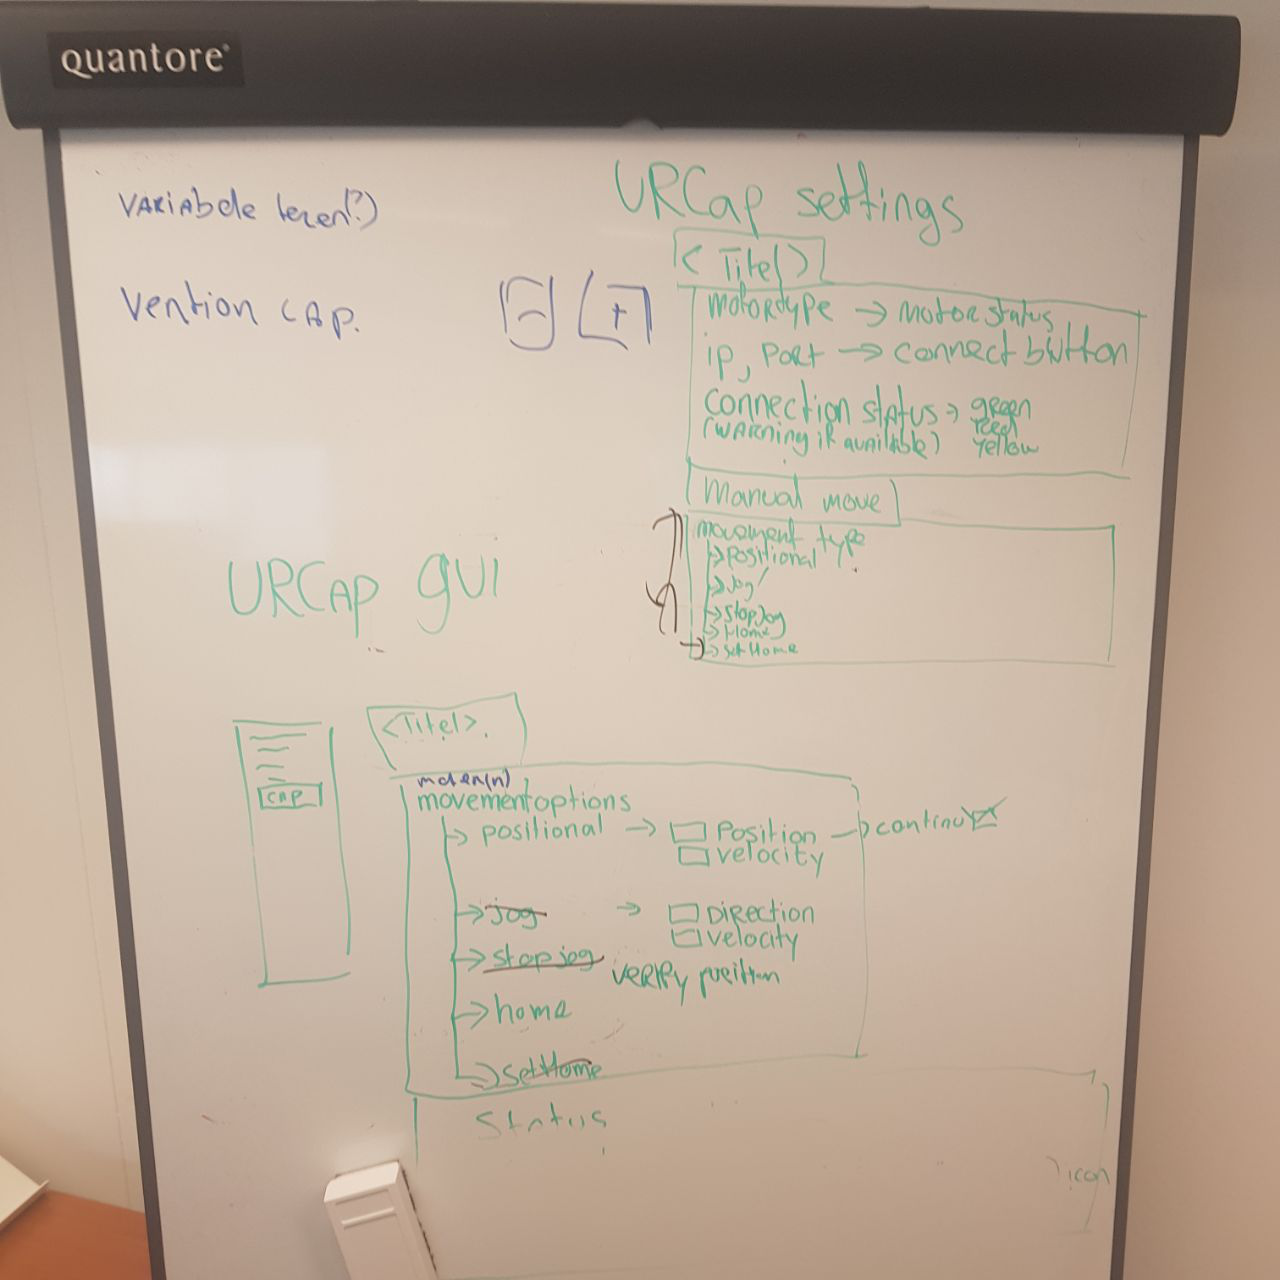 quantore
VARiabele lezen(?)
Vention CAP.
- +
URCap settings
<Titel>
motortype -> motorstatus
ip, port -> connect button
connection status -> green
reed
yellow
(warning if available)
Manual move
movement type
-> positional
-> Jog
-> StopJog
-> Home
-> setHome
URCAP GUI
CAP
<Titel>.
movementoptions
-> positional -> Position -> continu
velocity
-> jog -> Direction
velocity
-> stop jog
verify position
-> home
-> setHome
Status
icon